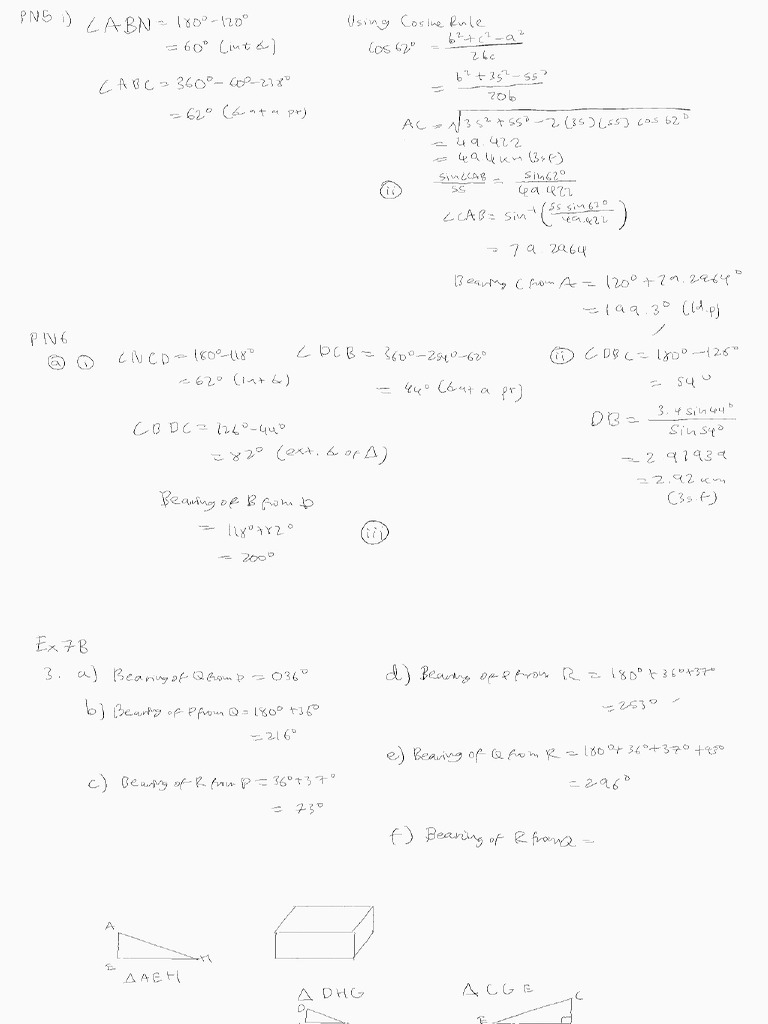 PN5 i) ∠ABN = 180° - 120°
= 60° (int ∠s)
∠ABC = 360° - 60° - 238°
= 62° (∠s at a pt)
Using Cosine Rule
cos 62° = b² + c² - a² / 2bc
= b² + 35² - 55² / 70b
AC = √35² + 55² - 2(35)(55) cos 62°
= 49.422
= 49.4 km (3s.f)
(ii) sin∠CAB / 55 = sin 62° / 49.422
∠CAB = sin⁻¹ (55 sin 62° / 49.422)
= 79.2964
Bearing C from A = 120° + 79.2964°
= 199.3° (1d.p)
PN6
(a) (i) ∠NCD = 180° - 118°
= 62° (int ∠)
∠DCB = 360° - 254° - 62°
= 44° (∠s at a pt)
∠BDC = 126° - 44°
= 82° (ext. ∠ of Δ)
Bearing of B from D
= 118° + 82°
= 200°
(ii) ∠DBC = 180° - 126°
= 54°
DB = 3.4 sin 44° / sin 54°
= 2.91939
= 2.92 km
(3s.f)
(iii)
Ex 7B
3. a) Bearing of Q from P = 036°
b) Bearing of P from Q = 180° + 36°
= 216°
c) Bearing of R from P = 36° + 37°
= 73°
d) Bearing of P from R = 180° + 36° + 37°
= 253°
e) Bearing of Q from R = 180° + 36° + 37° + 43°
= 296°
f) Bearing of R from Q =
A
E
H
Δ AEH
Δ DHG
D
Δ CGE
C
E